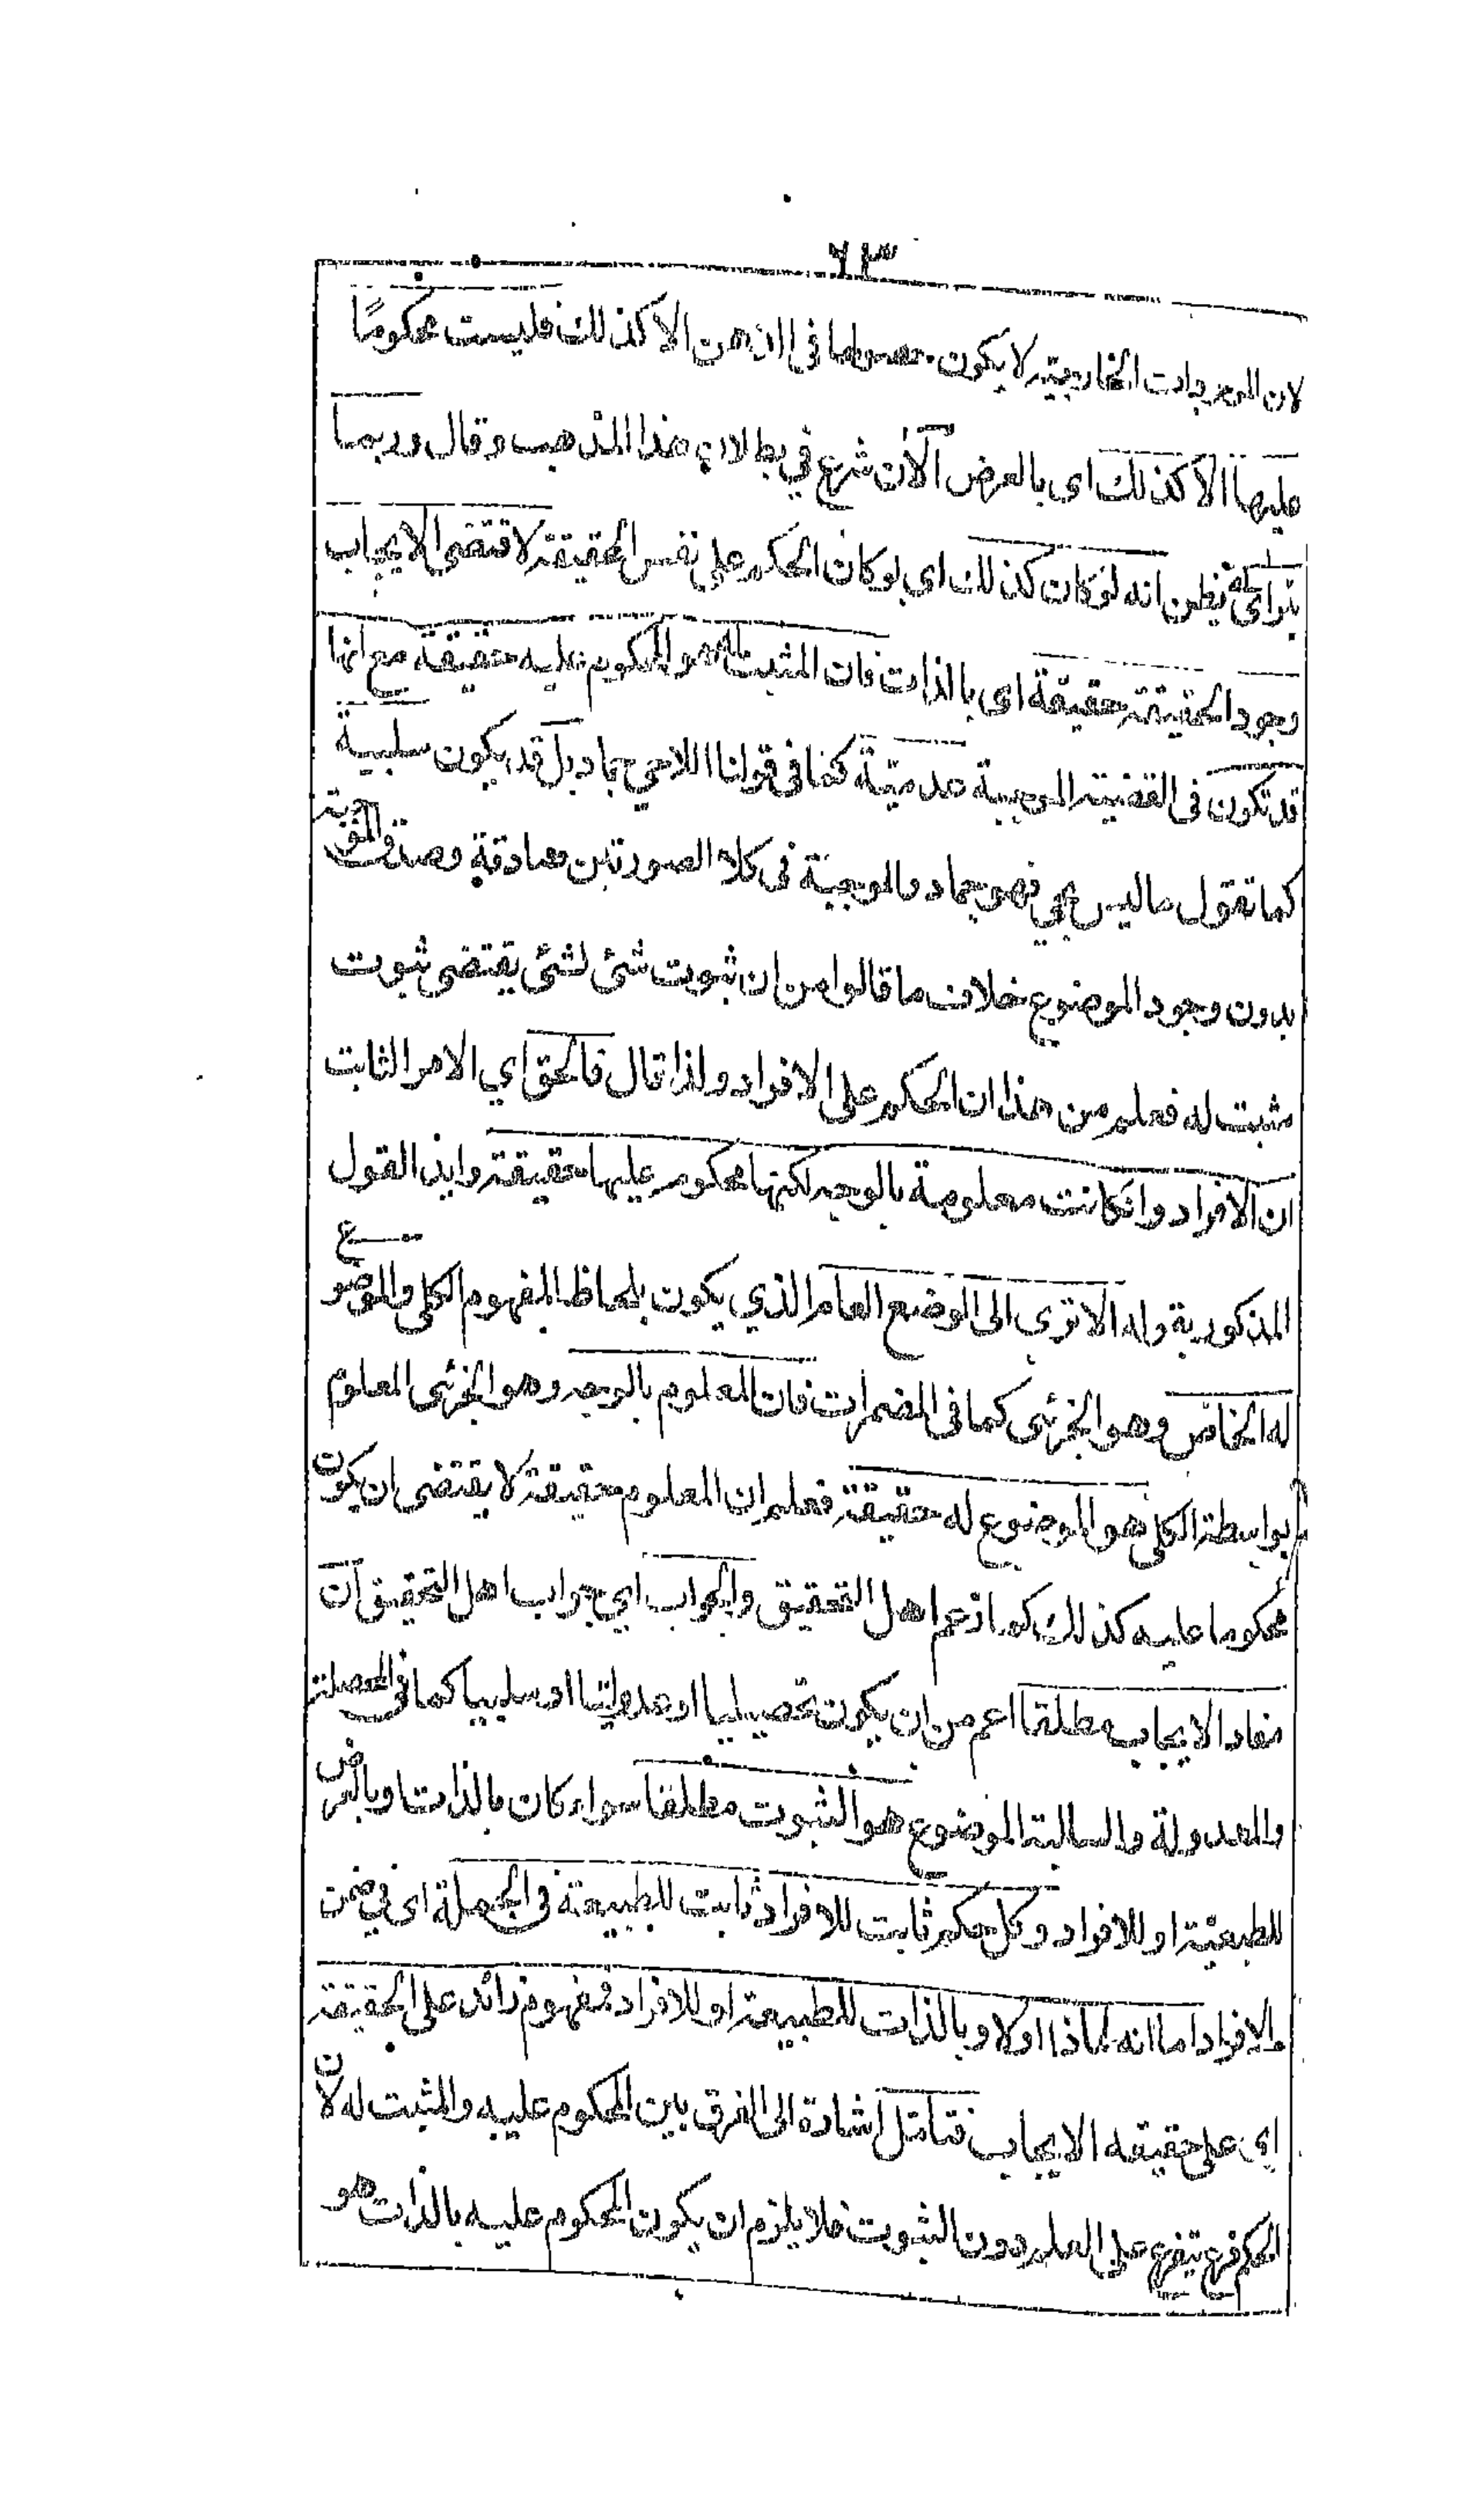 ٦٣
لان الموجودات الخارجية لا يكون حصولها في الذهن الا كذلك فليست محكومًا
عليها الا كذلك اى بالعرض الآن شرع في بطلان هذا المذهب وقال وربما
يترائى يظن انه لو كان كذلك اى لو كان الحكم على نفس الحقيقة لاقتضى الايجاب
وجود الحقيقة حقيقة اى بالذات فان المثبت له هو المحكوم عليه حقيقة مع انها
قد تكون فى القضية الموجبة عدمية كما فى قولنا اللاحي جماد بل قد يكون سلبية
كما تقول ما ليس بحي فهو جماد والموجبة فى كلا الصورتين صادقة وصدقت
بدون وجود الموضوع خلاف ما قالوا من ان ثبوت شئ لشئ يقتضى ثبوت
مثبت له فعلم من هذا ان الحكم على الافراد ولذا قال فالحق اي الامر الثابت
ان الافراد وانكانت معلومة بالوجه لكنها محكوم عليها حقيقة وايد القول
المذكور بقوله الا ترى الى الوضع العام الذي يكون بلحاظ المفهوم الكلى والموضوع
له الخاص وهو الجزئى كما فى المضمرات فان المعلوم بالوجه وهو الجزئى المعلوم
بواسطة الكلى هو الموضوع له حقيقة فعلم ان المعلوم حقيقة لا يقتضى ان يكون
محكوما عليه كذلك كما زعم اهل التحقيق والجواب اي جواب اهل التحقيق ان
مفاد الايجاب مطلقا اعم من ان يكون تحصيليا او عدوليا او سلبيا كما فى المحصلة
والمعدولة والسالبة الموضوع هو الثبوت مطلقا سواء كان بالذات او بالعرض
للطبعية او للافراد وكل حكم ثابت للافراد ثابت للطبيعة فى الجملة اى في ضمن
الافراد اما انه لماذا اولا وبالذات للطبيعة او للافراد فمفهوم زائد على الحقيقة
اي على حقيقه الايجاب فتأمل اشارة الى الفرق بين المحكوم عليه والمثبت له لان
الحكم فرع يتفرع على العلم دون الثبوت فلا يلزم ان يكون المحكوم عليه بالذات هو